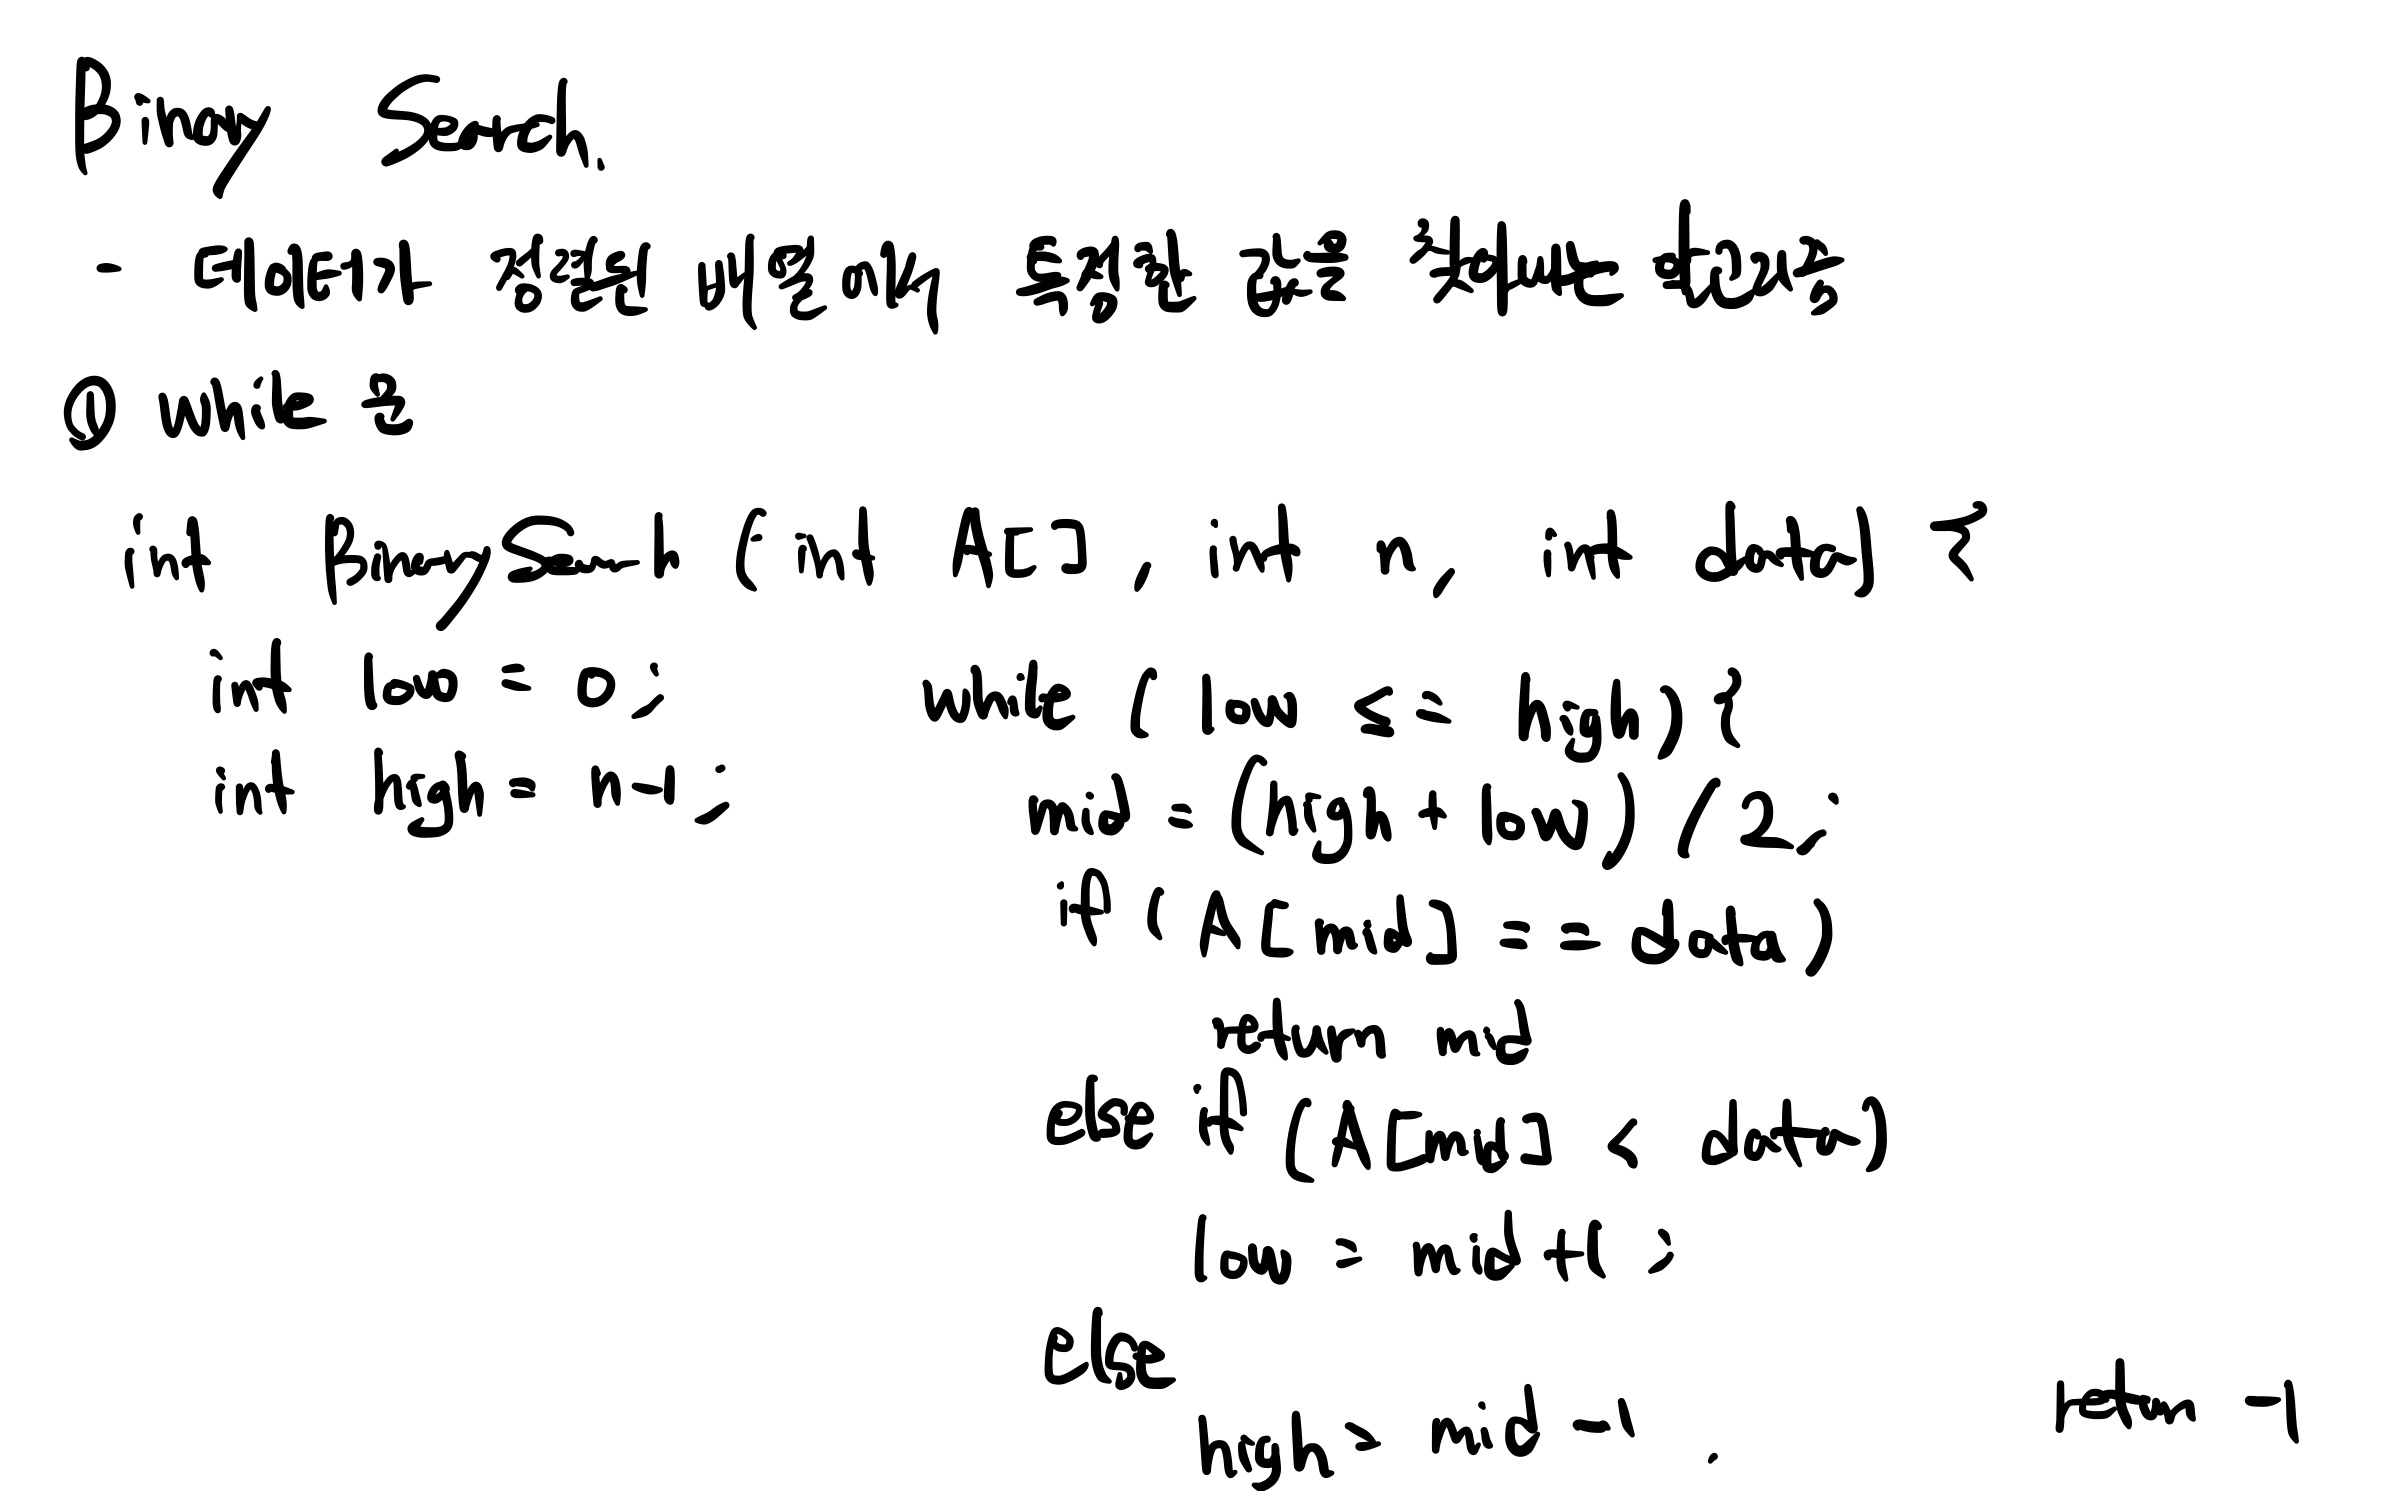 Binary Search.
- 데이터가 정렬된 배열에서, 특정한 값을 찾아내는 알고리즘
① while 문
int BinarySearch (int A[], int n, int data) {
int low = 0;
int high = n-1;
while (low <= high) {
mid = (high + low) / 2;
if (A[mid] == data)
return mid
else if (A[mid] < data)
low = mid+1;
else
high = mid -1;
return -1